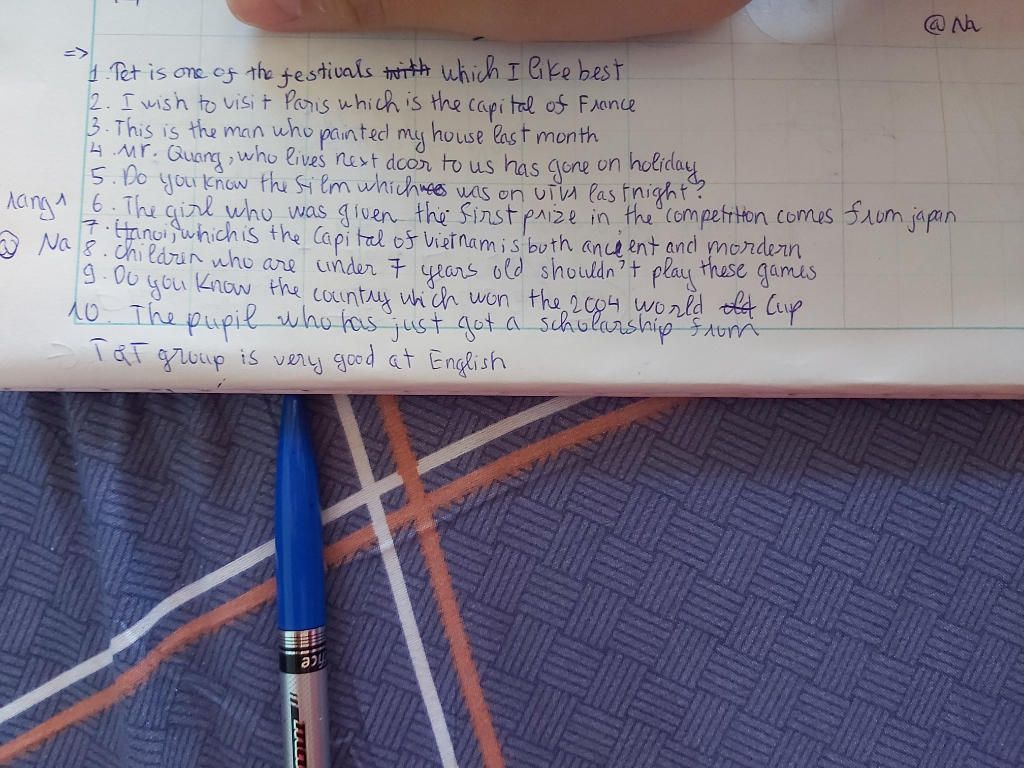 @ Na
=>
1. Tet is one of the festivals with which I like best
2. I wish to visit Paris which is the capital of France
3. This is the man who painted my house last month
4. Mr. Quang, who lives next door to us has gone on holiday
5. Do you know the film which was on VTV1 last night?
6. The girl who was given the first prize in the competition comes from japan
7. Hanoi, which is the Capital of Vietnam is both ancient and mordern
Na
8. Children who are under 7 years old shouldn't play these games
9. Do you Know the country which won the 2004 world old Cup
10. The pupil who has just got a scholarship from
T&T group is very good at English